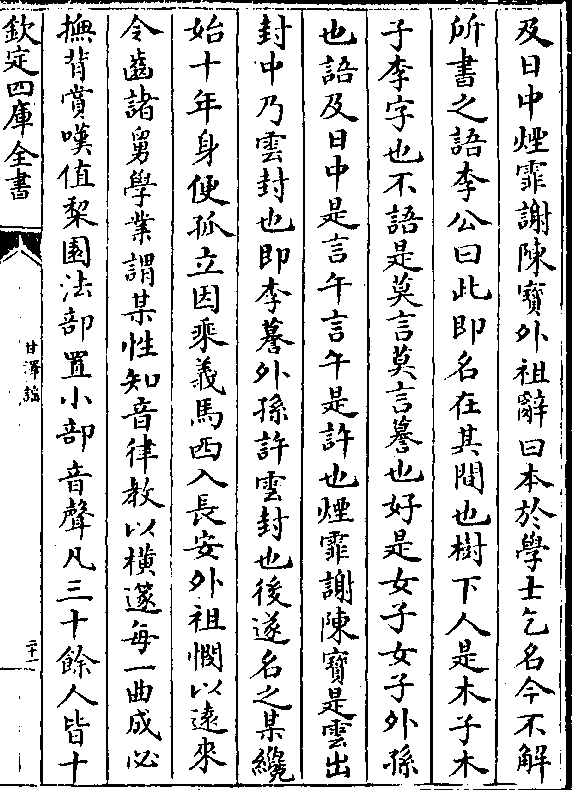 及日中煙霏謝陳寶外祖辭曰本於學士乞名今不解
所書之語李公曰此即名在其間也樹下人是木子木
子李字也不語是莫言莫言謩也好是女子女子外孫
也語及日中是言午言午是許也煙霏謝陳寶是雲出
封中乃雲封也即李謩外孫許雲封也後遂名之某纔
始十年身便孤立因乘義馬西入長安外祖憫以遠來
令齒諸舅學業謂某性知音律教以橫邃每一曲成必
撫背賞嘆值梨園法部置小部音聲凡三十餘人皆十
欽定四庫全書
甘澤謠
二十一